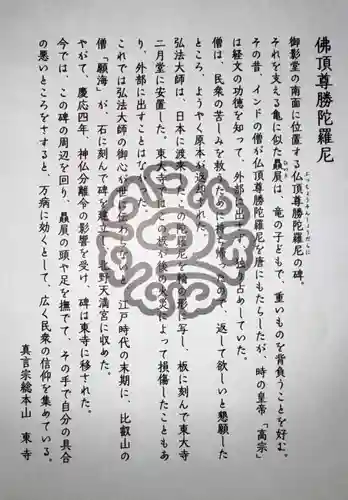 佛頂尊勝陀羅尼
御影堂の南面に位置する仏頂尊勝陀羅尼の碑。
それを支える亀に似た贔屓は、竜の子どもで、重いものを背負うことを好む。
その昔、インドの僧が仏頂尊勝陀羅尼を唐にもたらしたが、時の皇帝「高宗」
は経文の功徳を知って、外部に出さず独り占めしていた。
僧は、民衆の苦しみを救うために持ち帰ったので、返して欲しいと懇願した
ところ、ようやく原本が返却された。
弘法大師は、日本に渡来したこの陀羅尼を輪の形に写し、板に刻んで東大寺
二月堂に安置した。東大寺ではこの板が後の火災によって損傷したこともあ
り、外部に出すことはなかった。
これでは弘法大師の御心が世に伝わらないと、江戸時代の末期に、比叡山の
僧「願海」が、石に刻んで碑を建立し、北野天満宮に収めた。
やがて、慶応四年、神仏分離令の影響を受け、碑は東寺に移された。
今では、この碑の周辺を回り、贔屓の頭や足を撫でて、その手で自分の具合
の悪いところをさすると、万病に効くとして、広く民衆の信仰を集めている。
真言宗総本山　東寺